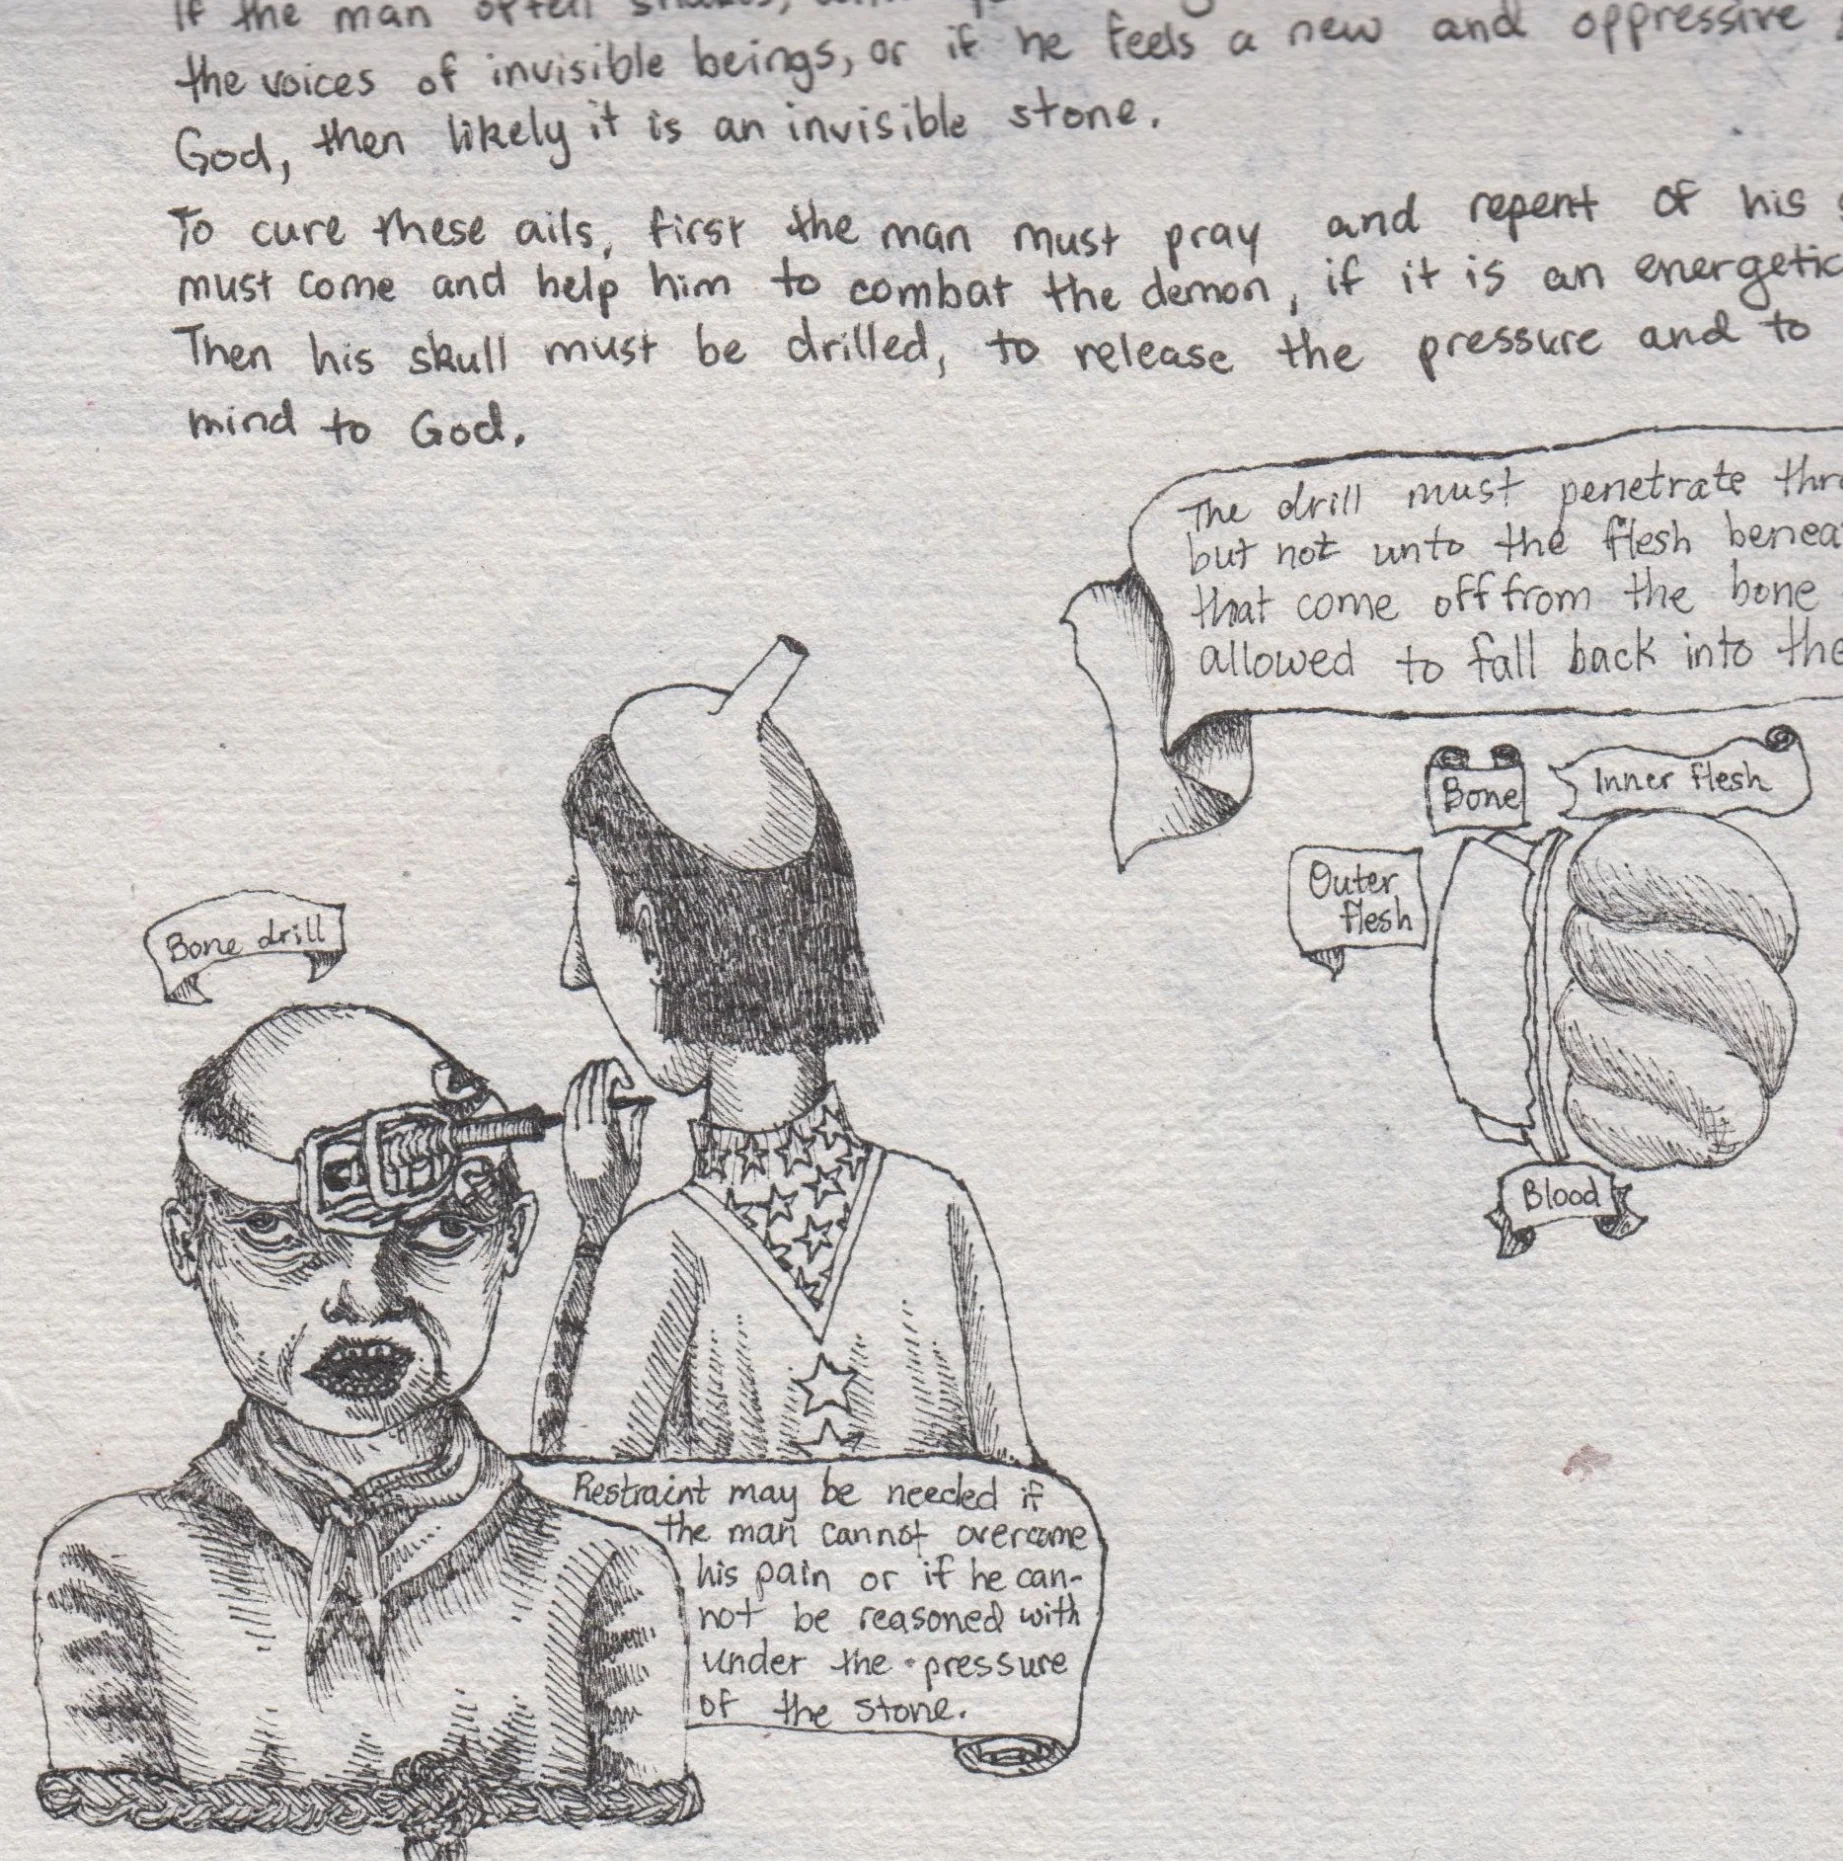 If the man often
the voices of invisible beings, or if he feels a new and oppressive
God, then likely it is an invisible stone.
To cure these ails, first the man must pray and repent of his
must come and help him to combat the demon, if it is an energetic
Then his skull must be drilled, to release the pressure and to
mind to God.
The drill must penetrate
but not unto the flesh
that come off from the bone
allowed to fall back into the
Bone
Inner flesh
Outer
flesh
Blood
Bone drill
Restraint may be needed if
the man cannot overcome
his pain or if he can-
not be reasoned with
under the pressure
of the stone.